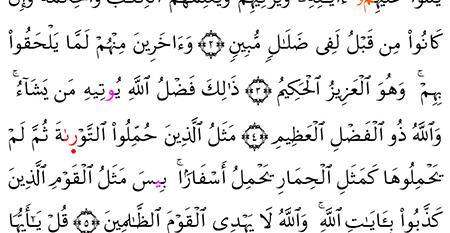 يَتْلُوا۟ عَلَيْهِمُۥٓ ءَايَٰتِهِۦ وَيُزَكِّيهِمْ وَيُعَلِّمُهُمُ ٱلْكِتَٰبَ وَٱلْحِكْمَةَ وَإِن
كَانُوا۟ مِن قَبْلُ لَفِى ضَلَٰلٍ مُّبِينٍ ﴿٢﴾ وَءَاخَرِينَ مِنْهُمْ لَمَّا يَلْحَقُوا۟
بِهِمْ ۚ وَهُوَ ٱلْعَزِيزُ ٱلْحَكِيمُ ﴿٣﴾ ذَٰلِكَ فَضْلُ ٱللَّهِ يُوتِيهِ مَن يَشَآءُ ۚ
وَٱللَّهُ ذُو ٱلْفَضْلِ ٱلْعَظِيمِ ﴿٤﴾ مَثَلُ ٱلَّذِينَ حُمِّلُوا۟ ٱلتَّوْرىٰةَ ثُمَّ لَمْ
يَحْمِلُوهَا كَمَثَلِ ٱلْحِمَارِ يَحْمِلُ أَسْفَارًۢا ۚ بِيسَ مَثَلُ ٱلْقَوْمِ ٱلَّذِينَ
كَذَّبُوا۟ بِـَٔايَٰتِ ٱللَّهِ ۚ وَٱللَّهُ لَا يَهْدِى ٱلْقَوْمَ ٱلظَّٰلِمِينَ ﴿٥﴾ قُلْ يَٰٓأَيُّهَا